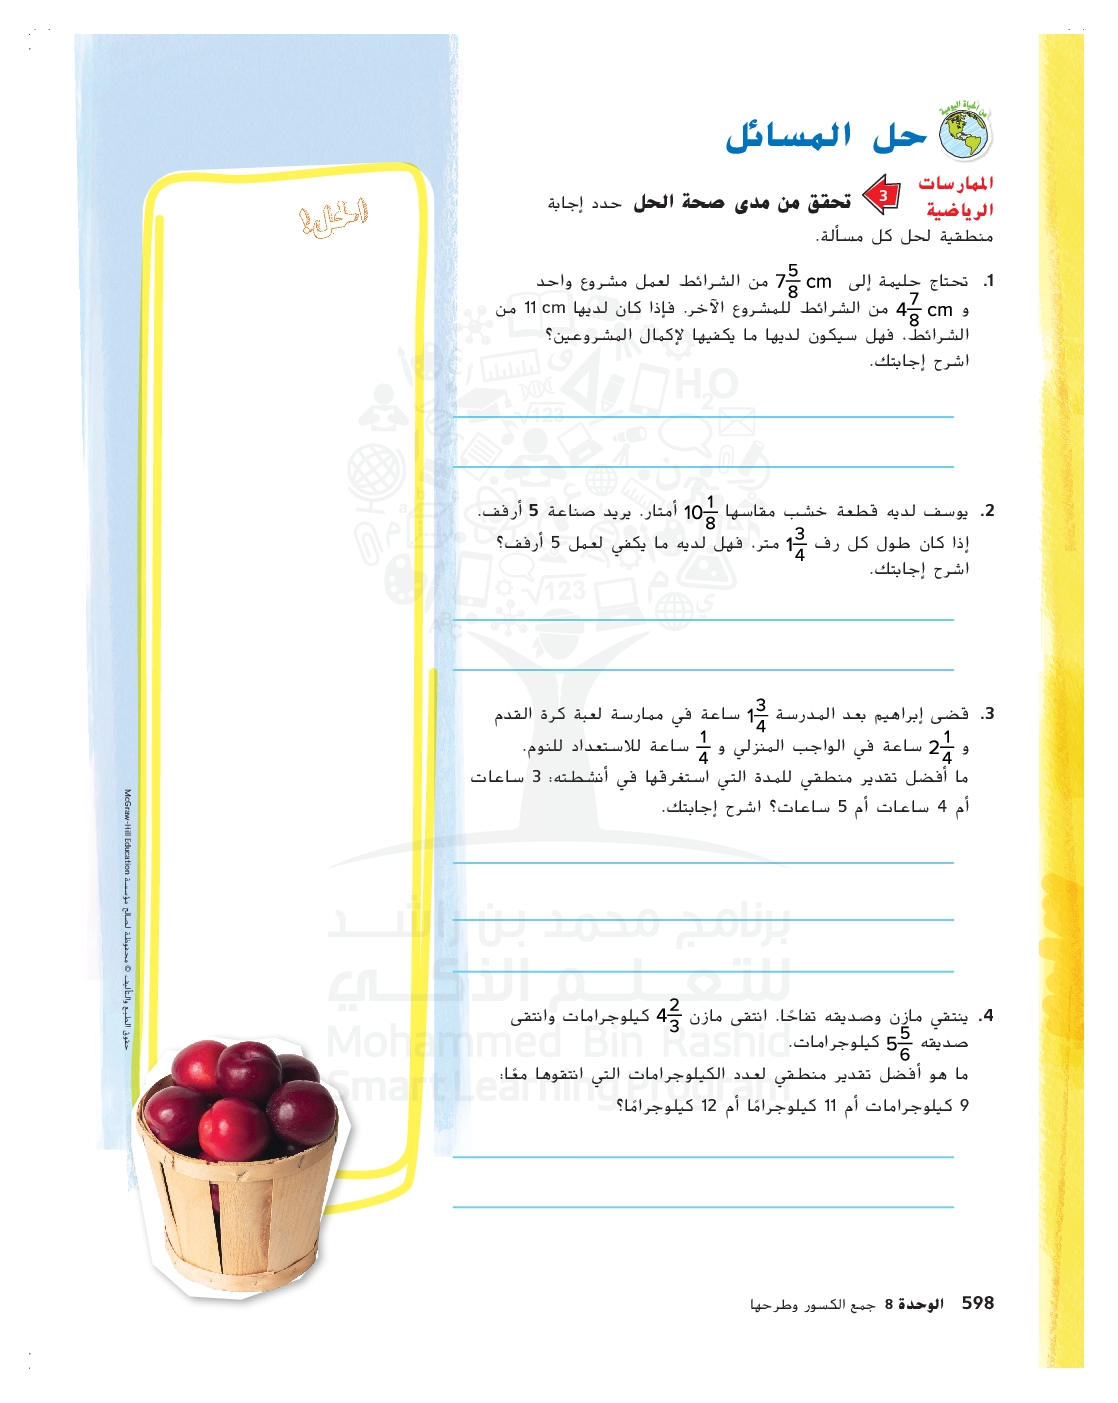 من الحياة اليومية
حل المسائل
الممارسات الرياضية 3 تحقق من مدى صحة الحل حدد إجابة
منطقية لحل كل مسألة.
1. تحتاج حليمة إلى 7 5/8 cm من الشرائط لعمل مشروع واحد
و 4 7/8 cm من الشرائط للمشروع الآخر. فإذا كان لديها 11 cm من
الشرائط، فهل سيكون لديها ما يكفيها لإكمال المشروعين؟
اشرح إجابتك.
2. يوسف لديه قطعة خشب مقاسها 10 1/8 أمتار. يريد صناعة 5 أرفف.
إذا كان طول كل رف 1 3/4 متر. فهل لديه ما يكفي لعمل 5 أرفف؟
اشرح إجابتك.
3. قضى إبراهيم بعد المدرسة 1 3/4 ساعة في ممارسة لعبة كرة القدم
و 2 1/4 ساعة في الواجب المنزلي و 1/4 ساعة للاستعداد للنوم.
ما أفضل تقدير منطقي للمدة التي استغرقها في أنشطته: 3 ساعات
أم 4 ساعات أم 5 ساعات؟ اشرح إجابتك.
4. ينتقي مازن وصديقه تفاحًا. انتقى مازن 4 2/3 كيلوجرامات وانتقى
صديقه 5 5/6 كيلوجرامات.
ما هو أفضل تقدير منطقي لعدد الكيلوجرامات التي انتقوها معًا:
9 كيلوجرامات أم 11 كيلوجرامًا أم 12 كيلوجرامًا؟
الحل!
برنامج محمد بن راشد
للتعلم الذكي
Mohammed Bin Rashid
Smart Learning Program
حقوق الطبع والتأليف © محفوظة لصالح مؤسسة McGraw-Hill Education
598 الوحدة 8 جمع الكسور وطرحها